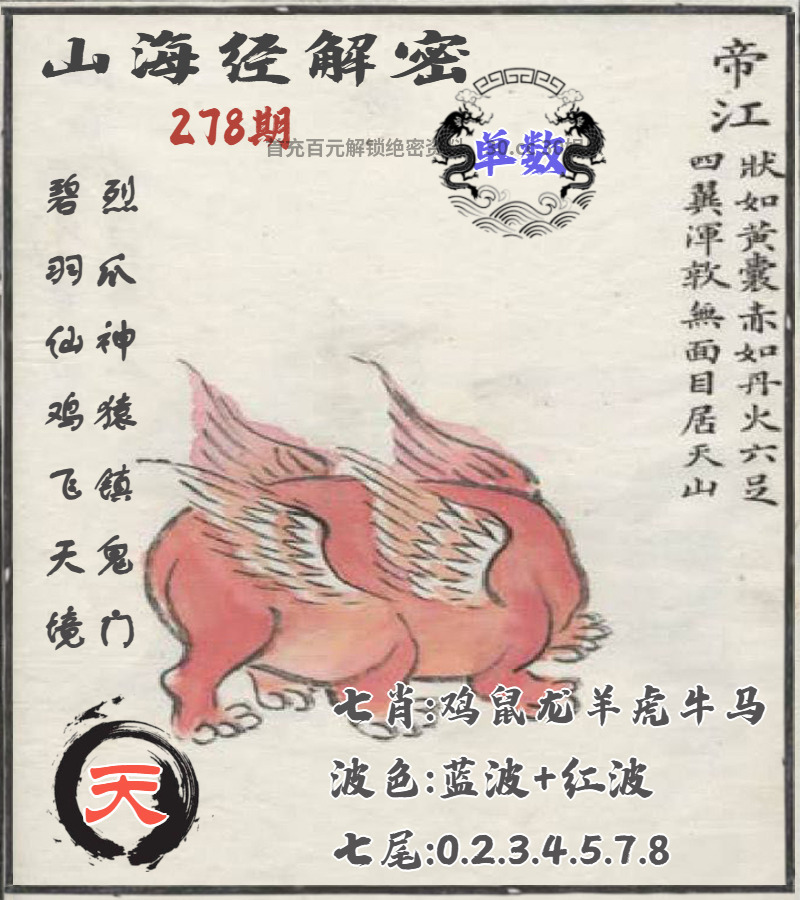 山海经解密
278期
首充百元解锁绝密资料
单数
帝江
狀如黃囊赤如丹火六足
四翼渾敦無面目居天山
烈爪神猿镇鬼门
碧羽仙鸡飞天境
天
七肖:鸡鼠龙羊虎牛马
波色:蓝波+红波
七尾:0.2.3.4.5.7.8